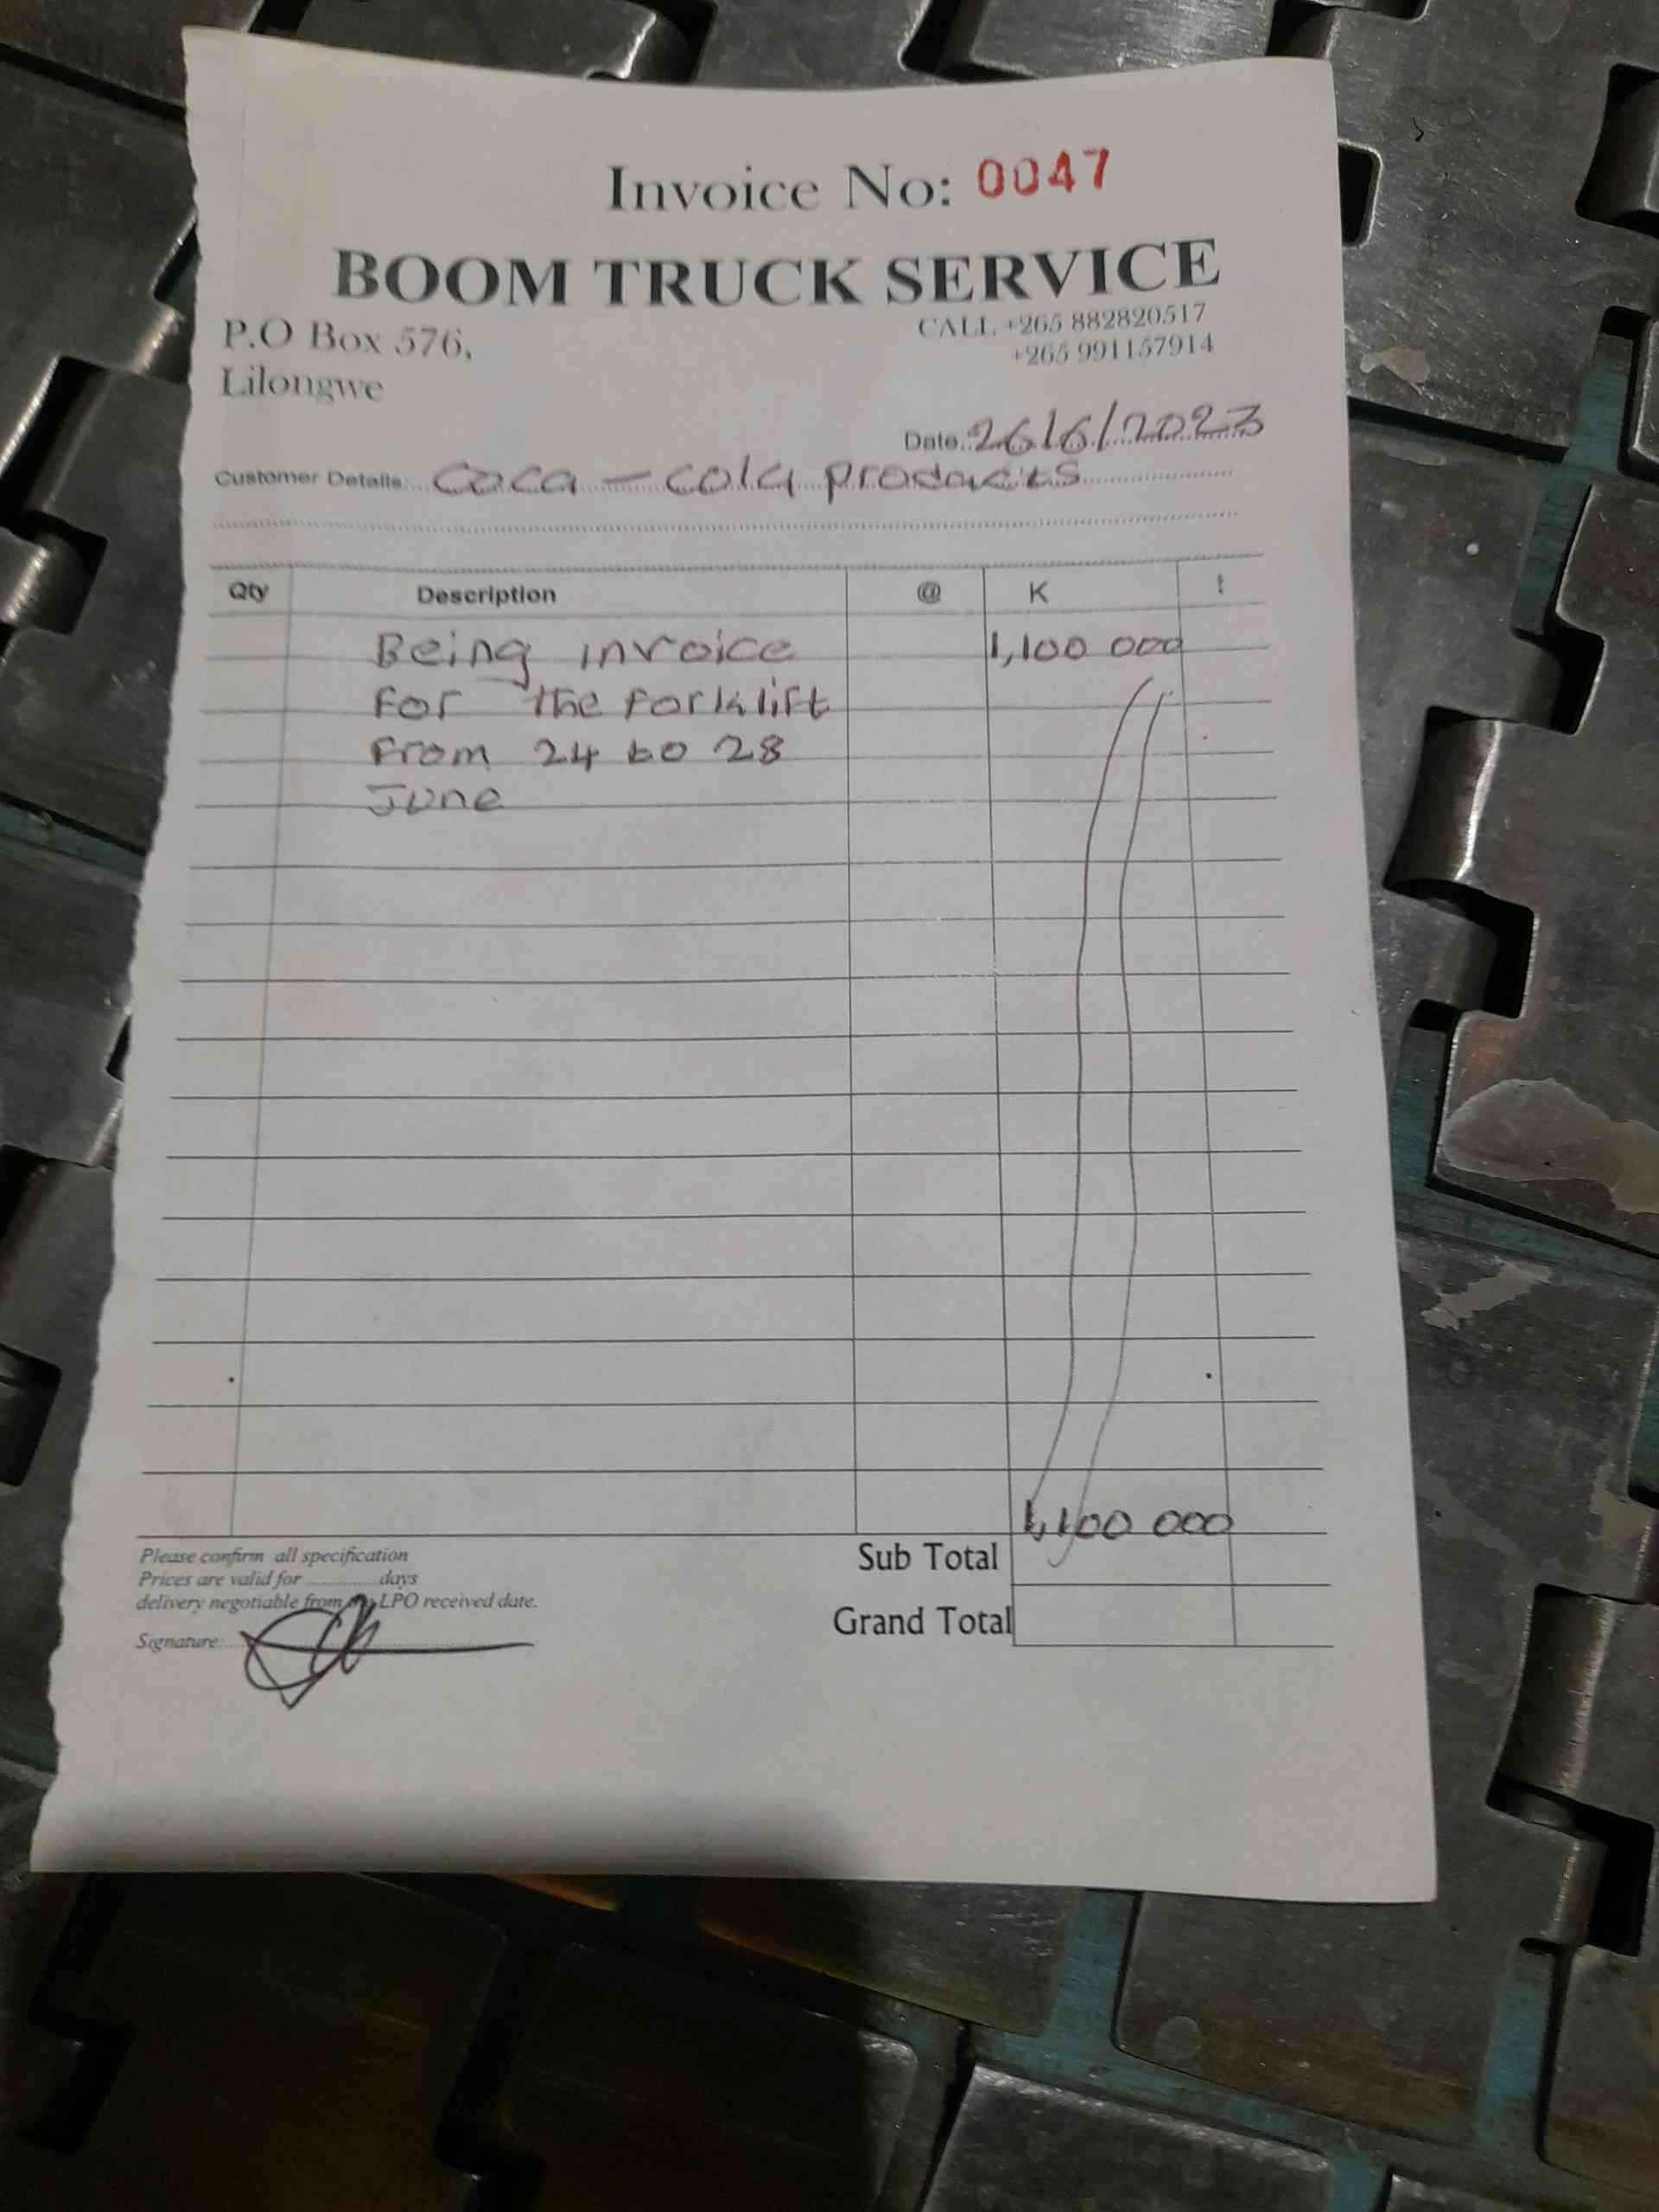 Invoice No: 0047
BOOM TRUCK SERVICE
P.O Box 576,
Lilongwe
CALL +265 882820517
+265 991157914
Date: 26/6/2023
Customer Details: Coca - cola products
Qty Description @ K t
Being invoice 1,100 000
For the forklift
From 24 to 28
June
1,100 000
Please confirm all specification
Prices are valid for ............ days
delivery negotiable from LPO received date.
Signature:
Sub Total
Grand Total